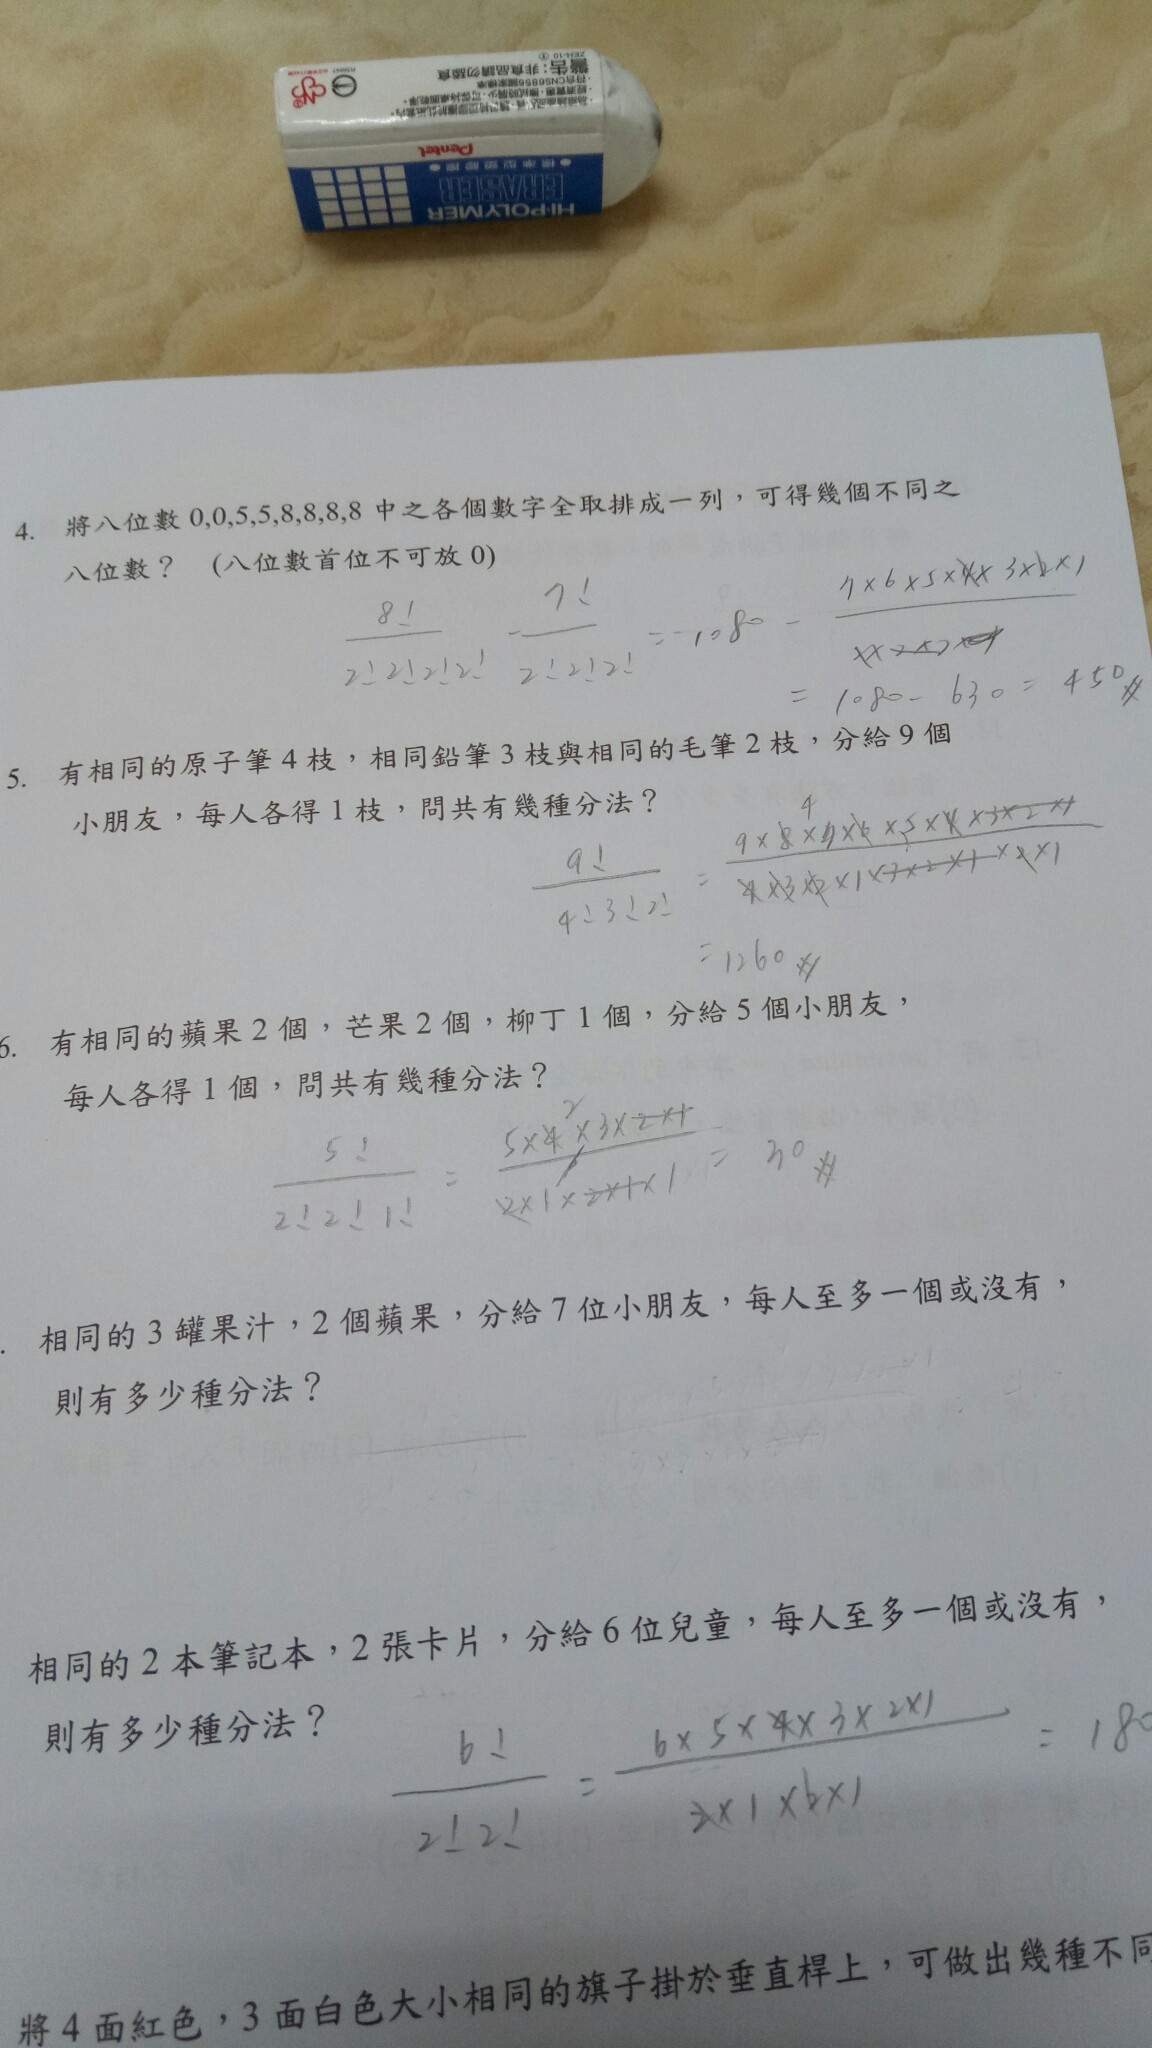 HI-POLYMER
ERASER
Pentel
警告：非食品請勿誤食
ZEH-10
4. 將八位數 0,0,5,5,8,8,8,8 中之各個數字全取排成一列，可得幾個不同之
八位數？ (八位數首位不可放 0)
8! / 2!2!2!2! - 7! / 2!2!2! = 1080 - 7×6×5×4×3×2×1
= 1080 - 630 = 450
5. 有相同的原子筆 4 枝，相同鉛筆 3 枝與相同的毛筆 2 枝，分給 9 個
小朋友，每人各得 1 枝，問共有幾種分法？
9! / 4!3!2! = 9×8×7×6×5×4×3×2×1 / 4×3×2×1×3×2×1×2×1
4
= 1260
6. 有相同的蘋果 2 個，芒果 2 個，柳丁 1 個，分給 5 個小朋友，
每人各得 1 個，問共有幾種分法？
5! / 2!2!1! = 5×4×3×2×1 / 2×1×2×1×1 = 30
2
相同的 3 罐果汁，2 個蘋果，分給 7 位小朋友，每人至多一個或沒有，
則有多少種分法？
相同的 2 本筆記本，2 張卡片，分給 6 位兒童，每人至多一個或沒有，
則有多少種分法？
6! / 2!2! = 6×5×4×3×2×1 / 2×1×2×1 = 180
將 4 面紅色，3 面白色大小相同的旗子掛於垂直桿上，可做出幾種不同